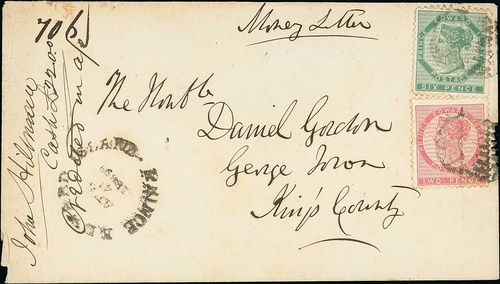 706
Money Letter
The Honble
Daniel Gordon
George Town
King's County
John
Cash
PRINCE EDWARD ISLAND
PRINCE EDWARD
POSTAGE
SIX PENCE
TWO PENCE